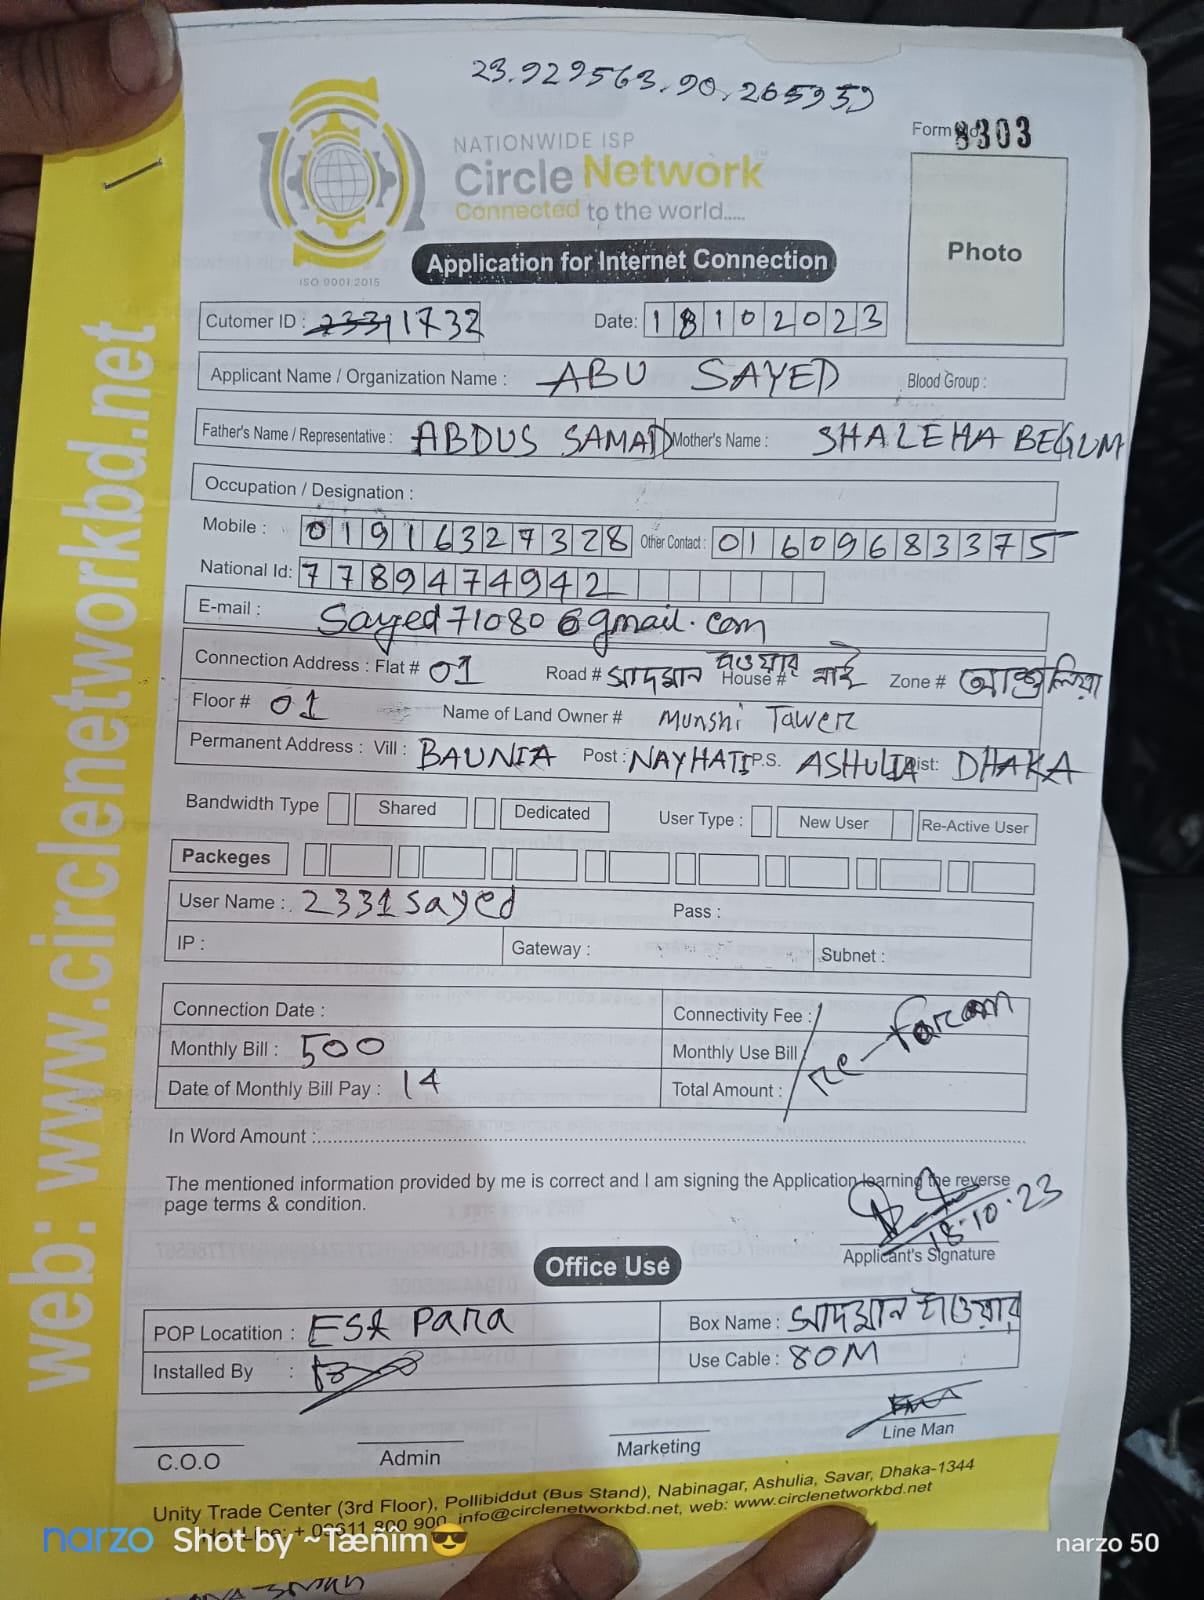 23.929563, 90.265959
Form No 8303
NATIONWIDE ISP
Circle Network
Connected to the world.....
ISO 9001:2015
Application for Internet Connection
Photo
Cutomer ID : 2331 1732 Date: 18102023
Applicant Name / Organization Name : ABU SAYED Blood Group :
Father's Name / Representative : ABDUS SAMAD Mother's Name : SHALEHA BEGUM
Occupation / Designation :
Mobile : 01916327328 Other Contact : 01609683375
National Id: 7789474942
E-mail : Sayed710806gmail.com
Connection Address : Flat # 01 Road # সাদমান টাওয়ার House # নাই Zone # আশুলিয়া
Floor # 01 Name of Land Owner # Munshi Tawer
Permanent Address : Vill : BAUNIA Post : NAYHATI P.S. ASHULIA Dist: DHAKA
Bandwidth Type Shared Dedicated User Type : New User Re-Active User
Packeges
User Name : 2331sayed Pass :
IP : Gateway : Subnet :
Connection Date : Connectivity Fee :
Monthly Bill : 500 Monthly Use Bill
Date of Monthly Bill Pay : 14 Total Amount :
Re-foram
In Word Amount :
The mentioned information provided by me is correct and I am signing the Application learning the reverse
page terms & condition.
18.10.23
Applicant's Signature
Office Use
POP Locatition : ESR PARA Box Name : সাদমান টাওয়ার
Installed By : Use Cable : 80M
C.O.O Admin Marketing Line Man
Unity Trade Center (3rd Floor), Pollibiddut (Bus Stand), Nabinagar, Ashulia, Savar, Dhaka-1344
Hot Line: + 09611 800 900, info@circlenetworkbd.net, web: www.circlenetworkbd.net
web: www.circlenetworkbd.net
narzo Shot by ~Tæñîm😎 narzo 50